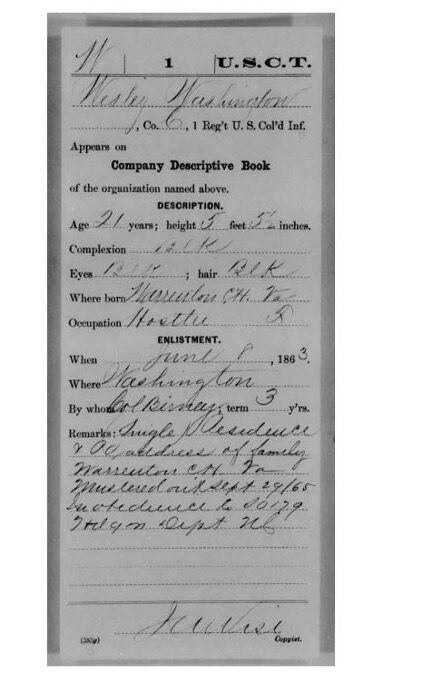 W | 1 | U.S.C.T.
Wesley Washington
, Co. C, 1 Reg't U. S. Col'd Inf.
Appears on
Company Descriptive Book
of the organization named above.
DESCRIPTION.
Age 21 years; height 5 feet 5½ inches.
Complexion Blk
Eyes Blk ; hair Blk
Where born Warrenton CH. Va
Occupation Hostler
ENLISTMENT.
When June 8, 1863.
Where Washington
By whom Col Birney; term 3 y'rs.
Remarks: Single Residence
& PO address of family
Warrenton CH Va
Mustered out Sept 29/65
in obedience to SO 179
Hd Qrs Dept NC
(383g) Copyist.